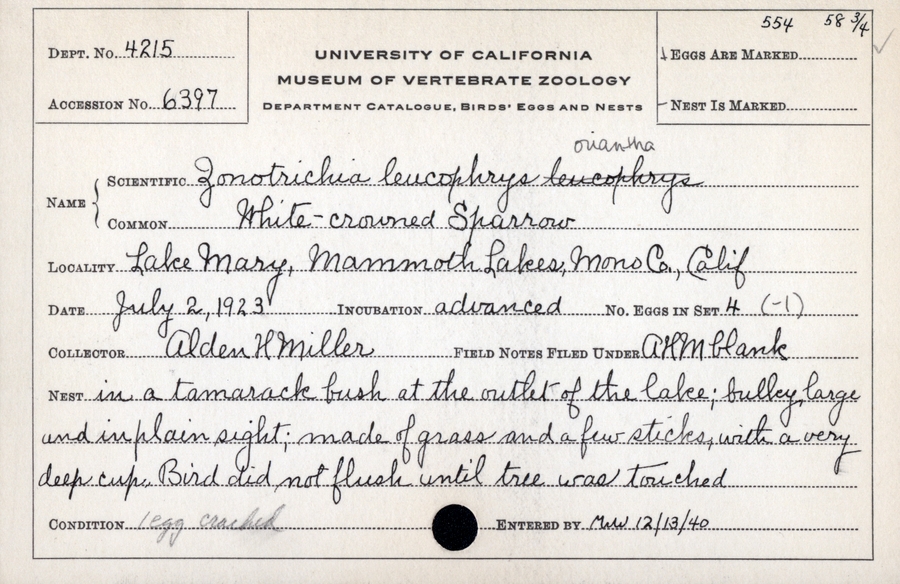 554 58 3/4
DEPT. NO. 4215
UNIVERSITY OF CALIFORNIA
MUSEUM OF VERTEBRATE ZOOLOGY
DEPARTMENT CATALOGUE, BIRDS' EGGS AND NESTS
ACCESSION NO. 6397
✓ EGGS ARE MARKED
– NEST IS MARKED
oriantha
NAME { SCIENTIFIC Zonotrichia leucophrys leucophrys
COMMON White-crowned Sparrow
LOCALITY Lake Mary, Mammoth Lakes, Mono Co., Calif
DATE July 2, 1923 INCUBATION advanced NO. EGGS IN SET 4 (-1)
COLLECTOR Alden H Miller FIELD NOTES FILED UNDER AHM blank
NEST in a tamarack bush at the outlet of the lake; bulky, large
and in plain sight; made of grass and a few sticks, with a very
deep cup. Bird did not flush until tree was touched
CONDITION 1 egg cracked ENTERED BY MW 12/13/40